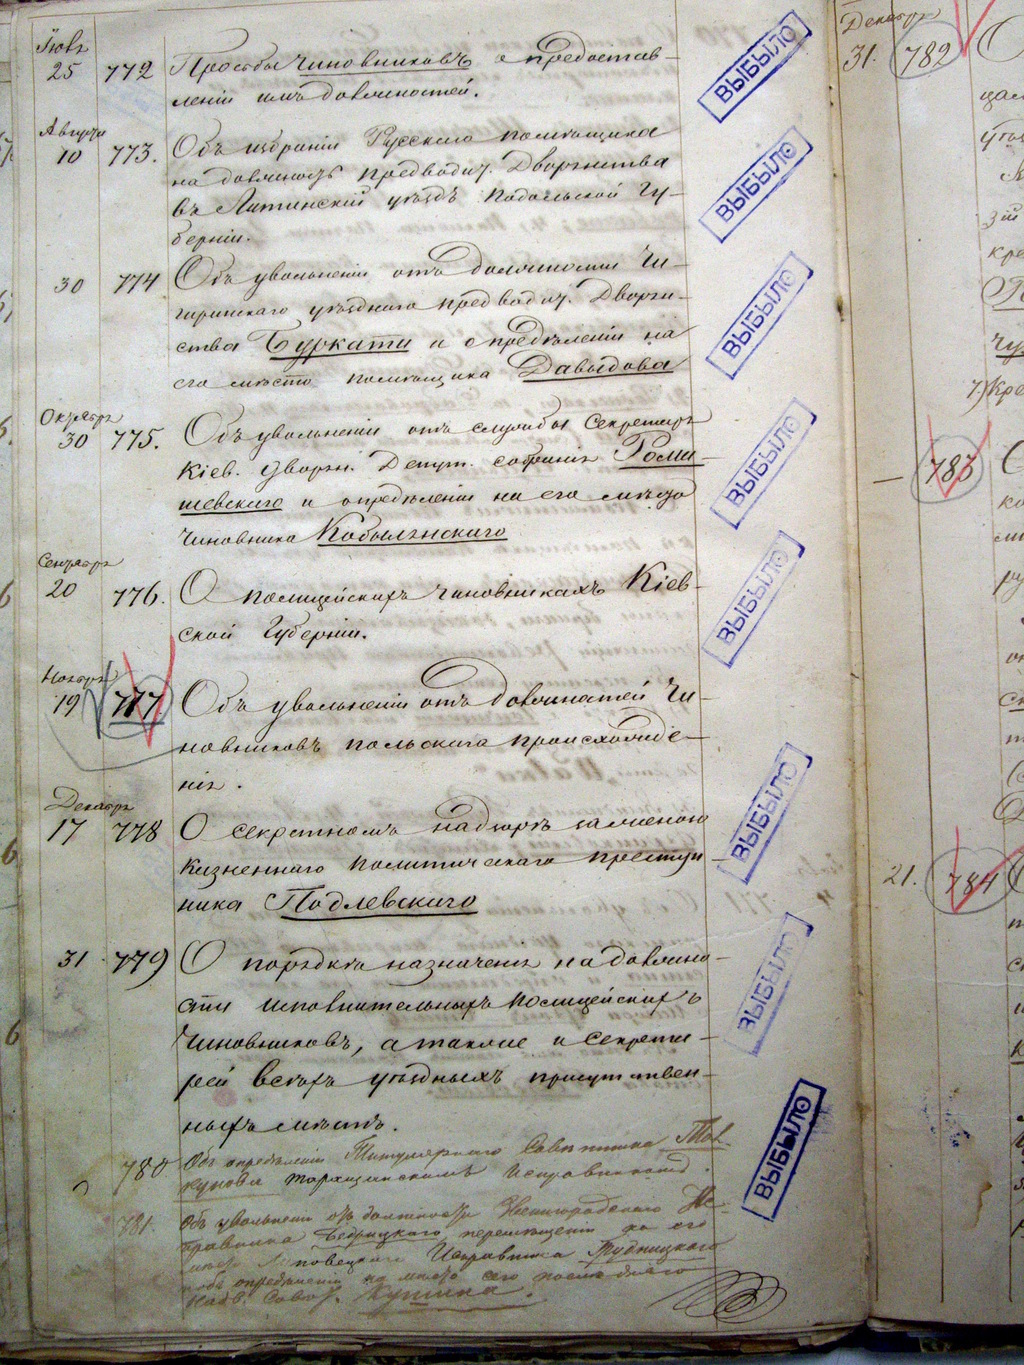 Іюля
25 772 Просьбы чиновниковъ о предостав-
леніи имъ должностей.
ВЫБЫЛО
Августа
10 773. Объ избраніи Русскаго помѣщика
на должность предводит. Дворянства
въ Литинскій уѣздъ Подольской Гу-
берніи.
ВЫБЫЛО
30 774 Объ увольненіи отъ должности Чи-
гиринскаго уѣзднаго предводит. Дворян-
ства Буркати и опредѣленіи на
его мѣсто помѣщика Давыдова
ВЫБЫЛО
Октября
30 775. Объ увольненіи отъ службы Секретаря
Кіев. дворян. Депут. собранія Роми-
шевскаго и опредѣленіи на его мѣсто
чиновника Кобылянскаго
ВЫБЫЛО
Сентября
20 776. О полицейскихъ чиновникахъ Кіев-
ской Губерніи.
ВЫБЫЛО
Ноября
19 777. Объ увольненіи отъ должностей Чи-
новниковъ польскаго происхожде-
нія.
Декабря
17 778 О секретномъ надзорѣ за женою
казненнаго политическаго преступ-
ника Подлевскаго
ВЫБЫЛО
31 779 О порядкѣ назначенія на должно-
сти исполнительныхъ полицейскихъ
чиновниковъ, а также и секрета-
рей всѣхъ уѣздныхъ присутствен-
ныхъ мѣстъ.
ВЫБЫЛО
780 Объ опредѣленіи Титулярнаго Совѣтника
Таращанскимъ Исправникомъ.
781. Объ увольненіи отъ должности Звенигородскаго Ис-
правника перемѣщеніи на его
Липовецкаго Исправника Рудницкаго
объ опредѣленіи на мѣсто сего послѣдняго
Надв. Совѣт.
ВЫБЫЛО
Декабря
31. 782
783
21. 784